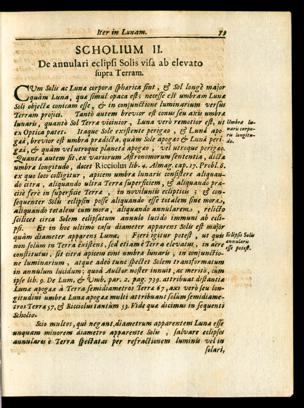 Iter in Lunam. 79
SCHOLIUM II.
De annulari eclipsi Solis visa ab elevato
supra Terram.
CUm Solis ac Luna corpora sphærica sint, & Sol longè major
quàm Luna, qua simul opaca est: necesse est umbram Luna
Soli objecta conicam esse, & in conjunctione luminarium versus
Terram projici. Tantò autem brevior est conus seu axis umbræ
lunaris, quantò Sol Terra vicinior, Luna verò remotior est, ut
ex Optica patet. Itaque Sole existente perigæo, & Lunâ apo-
gæâ, brevior est umbra prædicta, quàm Sole apogæo & Lunâ peri-
gæâ, & quàm vel utroque planetâ apogæo, vel utroque perigæo.
Quanta autem sit, ex variorum Astronomorum sententia, dicta
umbræ longitudo, docet Ricciolus lib. 2. Almag. cap. 17. Probl. 8.
ex quo loco colligitur, apicem umbræ lunaris consistere aliquan-
do citra, aliquando ultra Terræ superficiem, & aliquando præ-
cisè ferè in superficie Terræ, in noviluniis eclipticis; & con-
sequenter Solis eclipsin posse aliquando esse totalem sine mora,
aliquando totalem cum mora, aliquando annularem, relicto
scilicet circa Solem eclipsatum annulo lucido immuni ab ecli-
psi. Et in hoc ultimo casu diameter apparens Solis est major
quàm diameter apparens Lunæ. Fieri igitur potest, ut quis
non solùm in Terra existens, sed etiam è Terra elevatus, in aëre
constitutus, sit citra apicem coni umbræ lunaris, in conjunctio-
ne luminarium, atque adeò tunc spectet Solem transformatum
in annulum lucidum; quod Auctor noster innuit, ac meritò, cùm
ipse lib. 9. De Lum. & Umb. par. 2. pag. 739. attribuat distantiæ
Lunæ apogææ à Terra semidiametros Terræ 67, axi verò seu lon-
gitudini umbræ Lunæ apogææ multi attribuant solùm semidiame-
tros Terræ 57, & Ricciolus tantùm 53. Vide quæ dicimus in sequenti
Scholio.
Scio multos, qui negant, diametrum apparentem Lunæ esse
unquam minorem diametro apparente Solis, salvare eclipses
annulares è Terra spectatas per refractionem luminis vel in
solari,
Umbra lu-
naris corpo-
ris longitu-
do.
Eclipsis Solis
annularis
esse potest.